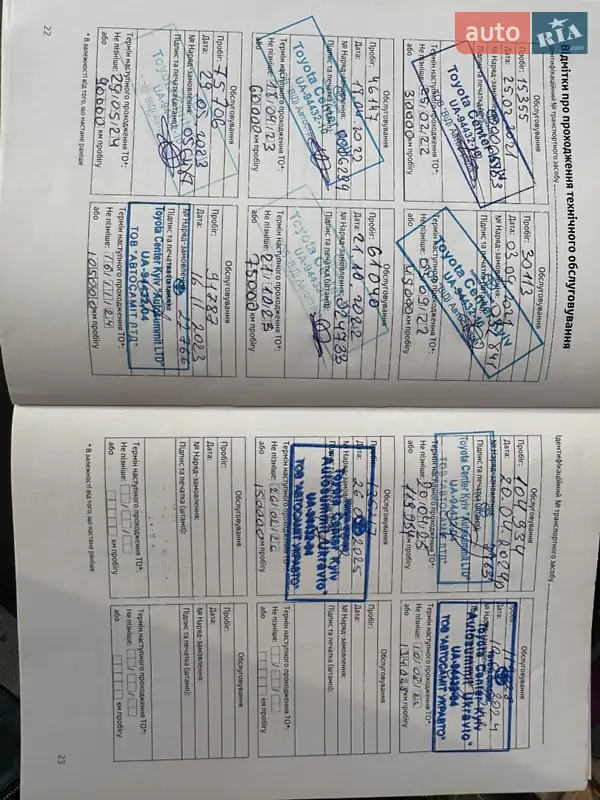 auto RIA.com
Відмітки про проходження технічного обслуговування
Ідентифікаційний № транспортного засобу
Обслуговування
Пробіг: 15355
Дата: 25.02.2021
№ Наряд-замовлення:
Підпис та печатка (штамп):
Toyota Center Kyiv
UA-94432
Термін наступного проходження ТО*:
Не пізніше: 25/02/22
або 30000 км пробігу
Обслуговування
Пробіг: 30113
Дата: 03.09.2021
№ Наряд-замовлення:
Підпис та печатка (штамп):
Toyota Center Kyiv
UA-94432
Термін наступного проходження ТО*:
Не пізніше: 03/09/22
або 45000 км пробігу
Обслуговування
Пробіг: 46147
Дата: 18.04.2022
№ Наряд-замовлення:
Підпис та печатка (штамп):
Toyota Center
UA-94432
Термін наступного проходження ТО*:
Не пізніше: 18/04/23
або 60000 км пробігу
Обслуговування
Пробіг: 61040
Дата: 21.10.2022
№ Наряд-замовлення:
Підпис та печатка (штамп):
Toyota
Термін наступного проходження ТО*:
Не пізніше: 21/10/23
або 75000 км пробігу
Обслуговування
Пробіг: 75706
Дата: 29.05.2023
№ Наряд-замовлення:
Підпис та печатка (штамп):
Toyota
Термін наступного проходження ТО*:
Не пізніше: 29/05/24
або 90000 км пробігу
Обслуговування
Пробіг: 91787
Дата: 16.11.2023
№ Наряд-замовлення: 27766
Підпис та печатка
Toyota Center Kyiv "Autosummit LTD"
UA-94432204
ТОВ "АВТОСАМІТ ЛТД"
Термін наступного проходження ТО*:
Не пізніше: 16/11/24
або 105000 км пробігу
* В залежності від того, що настане раніше
22
Ідентифікаційний № транспортного засобу
Обслуговування
Пробіг: 104934
Дата: 20.04.2024
№ Наряд-замовлення:
Підпис та печатка
Toyota Center Kyiv "Autosummit LTD"
ТОВ "АВТОСАМІТ ЛТД"
Термін наступного проходження ТО*:
Не пізніше: 20/04/25
або км пробігу
Обслуговування
Пробіг:
Дата: 2024
Toyota Center Kyiv
Autosummit Ukravto"
ТОВ "АВТОСАМІТ УКРАВТО"
Термін наступного проходження ТО*:
Не пізніше:
або км пробігу
Обслуговування
Пробіг:
Дата: 2025
№ Наряд-замовлення:
Підпис та печатка (штамп):
Toyota Center Kyiv
"Autosummit Ukravto"
ТОВ "АВТОСАМІТ УКРАВТО"
Термін наступного проходження ТО*:
Не пізніше: 26/02/26
або 150000 км пробігу
Обслуговування
Пробіг:
Дата:
№ Наряд-замовлення:
Підпис та печатка (штамп):
Термін наступного проходження ТО*:
Не пізніше:
або км пробігу
Обслуговування
Пробіг:
Дата:
№ Наряд-замовлення:
Підпис та печатка (штамп):
Термін наступного проходження ТО*:
Не пізніше:
або км пробігу
Обслуговування
Пробіг:
Дата:
№ Наряд-замовлення:
Підпис та печатка (штамп):
Термін наступного проходження ТО*:
Не пізніше:
або км пробігу
* В залежності від того, що настане раніше
23